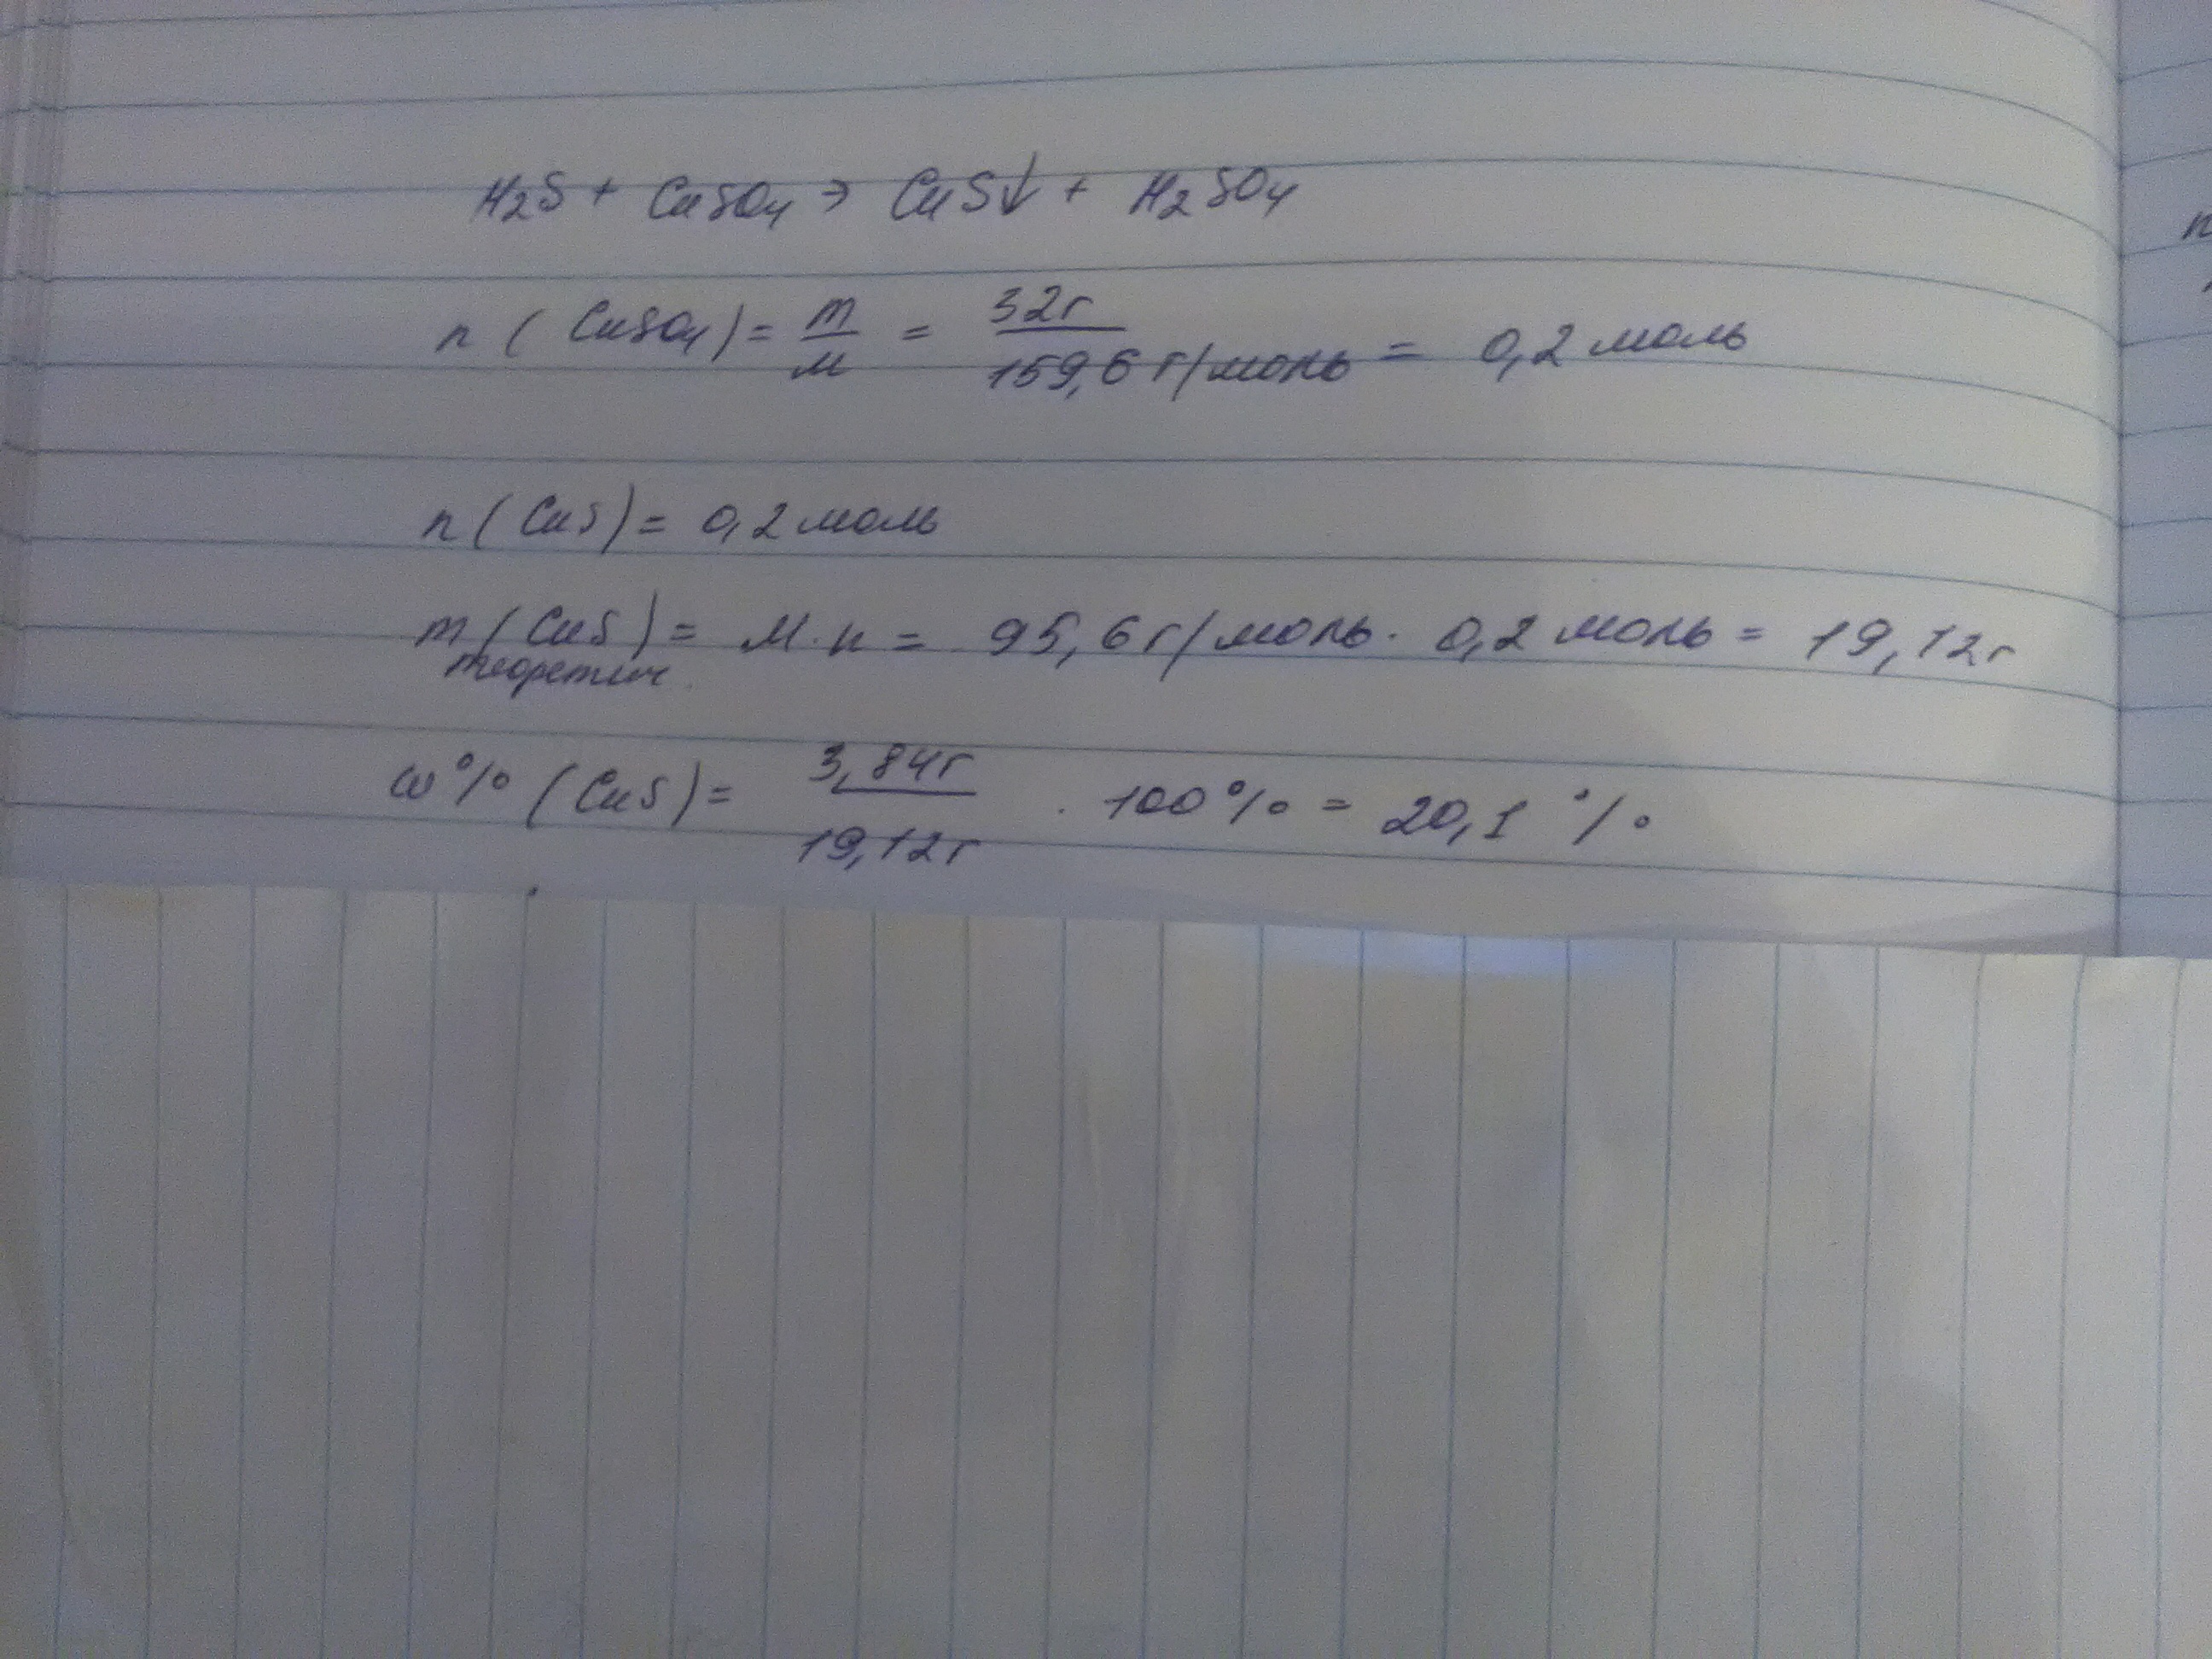 H₂S + CuSO₄ → CuS↓ + H₂SO₄
n ( CuSO₄) = m/M = 32г/159,6 г/моль = 0,2 моль
n (CuS) = 0,2 моль
m (CuS) = M · n = 95,6 г/моль · 0,2 моль = 19,12г
теоретич.
ω% (CuS) = 3,84г/19,12г · 100% = 20,1 %
n